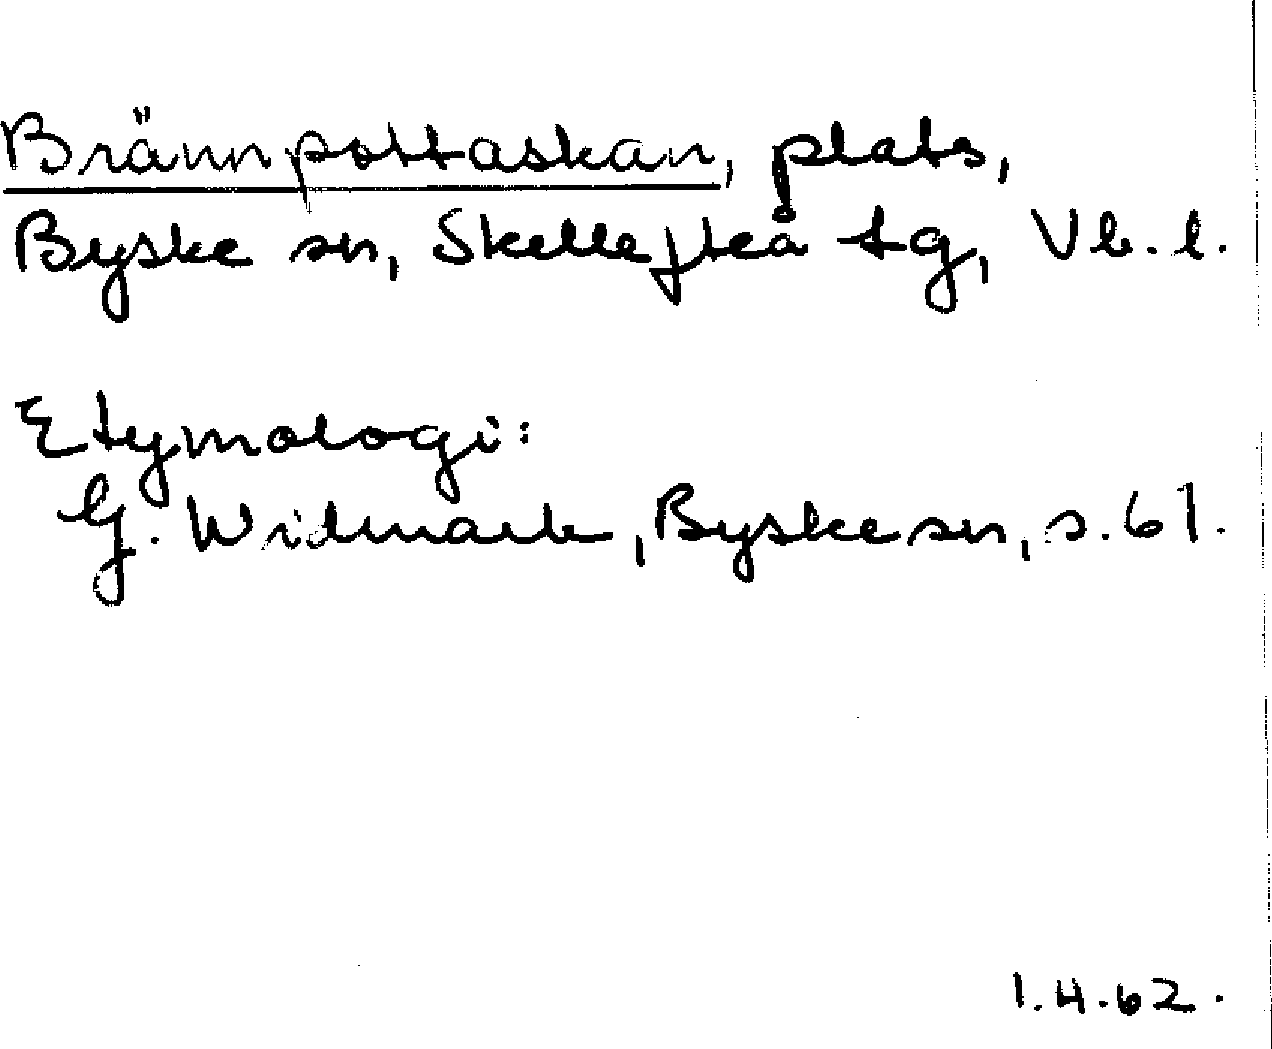 Brännpottaskan, plats,
Byske sn, Skellefteå tg, Vb. l.
Etymologi:
G. Widmark, Byske sn, s. 61.
1.4.62.